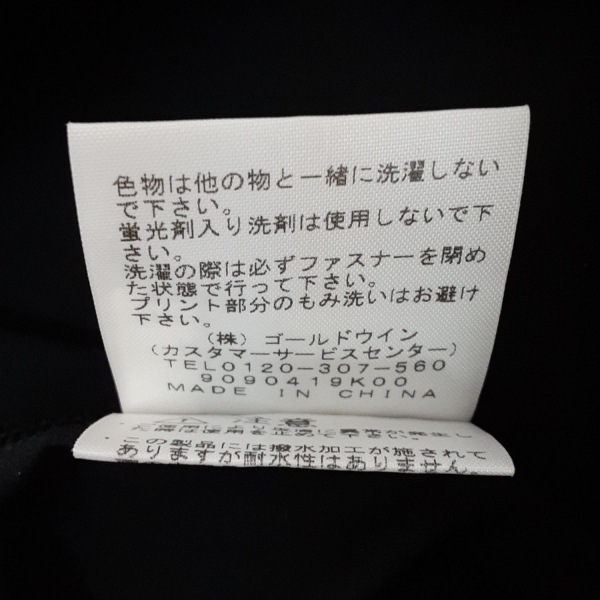 色物は他の物と一緒に洗濯しない
で下さい。
蛍光剤入り洗剤は使用しないで下
さい。
洗濯の際は必ずファスナーを閉め
た状態で行って下さい。
プリント部分のもみ洗いはお避け
下さい。
(株) ゴールドウイン
(カスタマーサービスセンター)
TEL0120-307-560
9090419K00
MADE IN CHINA
注意
た際は使用を止めて下さい。
・この製品には撥水加工が施されて
ありますが耐水性はありません。